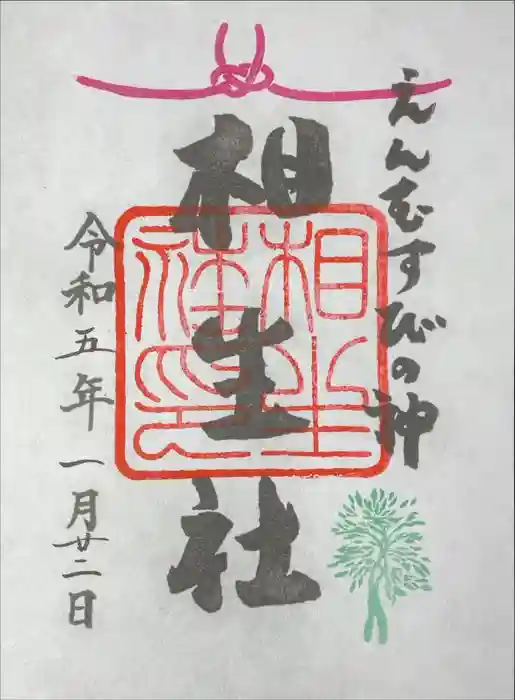 えんむすびの神
相生社
相生
社印
令和五年一月廿二日